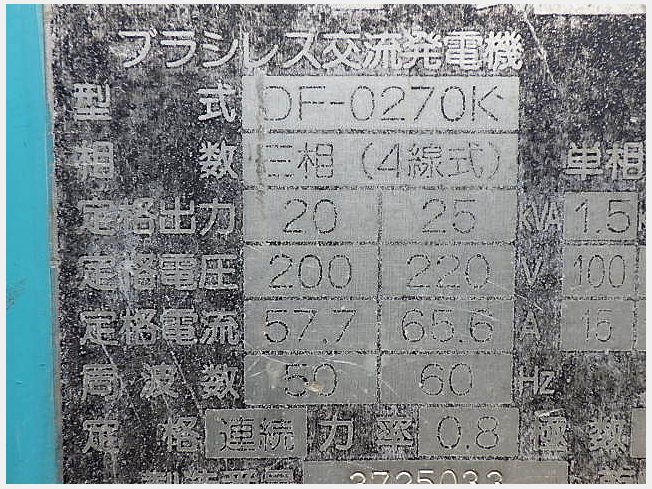 ブラシレス交流発電機
型 式 DF-0270K
相 数 三相 (4線式) 単相
定格出力 20 25 KVA 1.5
定格電圧 200 220 V 100
定格電流 57.7 65.6 A 15
周波数 50 60 Hz
定 格 連続 力率 0.8 極数
3725033